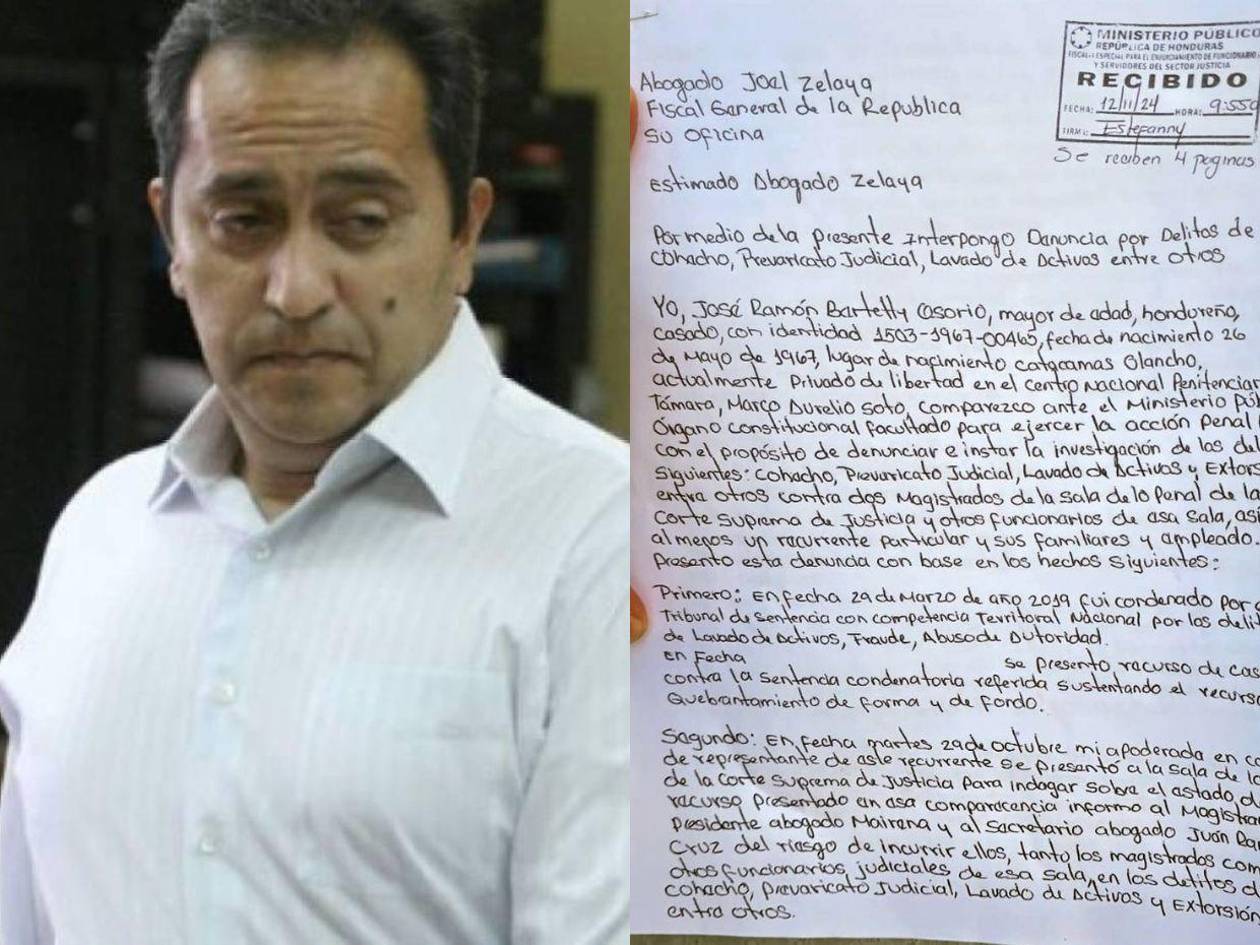 MINISTERIO PÚBLICO
REPÚBLICA DE HONDURAS
FISCALÍA ESPECIAL PARA EL ENJUICIAMIENTO DE FUNCIONARIO
Y SERVIDORES DEL SECTOR JUSTICIA
RECIBIDO
FECHA: 12/11/24 HORA: 9:55
FIRMA: Estefanny
Se reciben 4 paginas
Abogado Joel Zelaya
Fiscal General de la Republica
Su Oficina
Estimado Abogado Zelaya
Por medio de la presente Interpongo Denuncia por Delitos de
Cohacho, Prevaricato Judicial, Lavado de Activos entre otros
Yo, José Ramón Bartetty Osorio, mayor de edad, hondureño,
casado, con identidad 1503-1967-00465, fecha de nacimiento 26
de Mayo de 1967, lugar de nacimiento catacamas Olancho,
actualmente Privado de libertad en el Centro Nacional Penitenciar
Támara, Marco Aurelio Soto, comparezco ante el Ministerio Púb
Órgano constitucional facultado para ejercer la acción Penal
con el propósito de denunciar e instar la investigación de los del
Siguientes: Cohacho, Prevaricato Judicial, Lavado de Activos y Extors
entre otros contra dos Magistrados de la Sala de lo Penal de la
Corte Suprema de Justicia y otros funcionarios de esa Sala, asi
al menos un recurrente particular y sus familiares y empleado.
Presento esta denuncia con base en los hechos Siguientes:
Primero: En fecha 29 de Marzo de año 2019 fui condenado por
Tribunal de Sentencia con competencia Territoral Nacional por los delit
de Lavado de Activos, Fraude, Abuso de Autoridad.
en Fecha se presento recurso de cas
contra la sentencia condenatoria referida sustentando el recurs
Quebrantamiento de forma y de fondo.
Segundo: En fecha martes 29 de octubre mi apoderada en c
de representante de este recurrente se presentó a la sala de lo
de la Corte Suprema de Justicia para indagar sobre el estado d
recurso presentado en esa comparecencia informo al Magistra
Presidente abogado Mairena y al Secretario abogado Juan
Cruz del riesgo de incurrir ellos, tanto los magistrados com
otros funcionarios judiciales de esa sala, en los delitos d
Cohacho, Prevaricato Judicial, Lavado de Activos y Extorsión
entre otros.